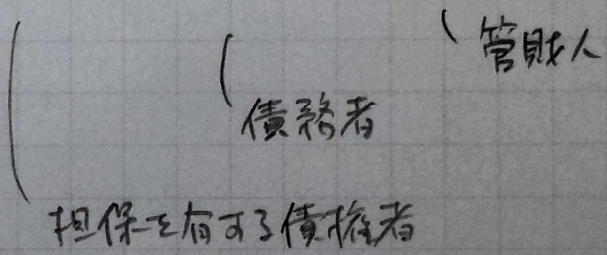 管財人
債務者
担保を有する債権者